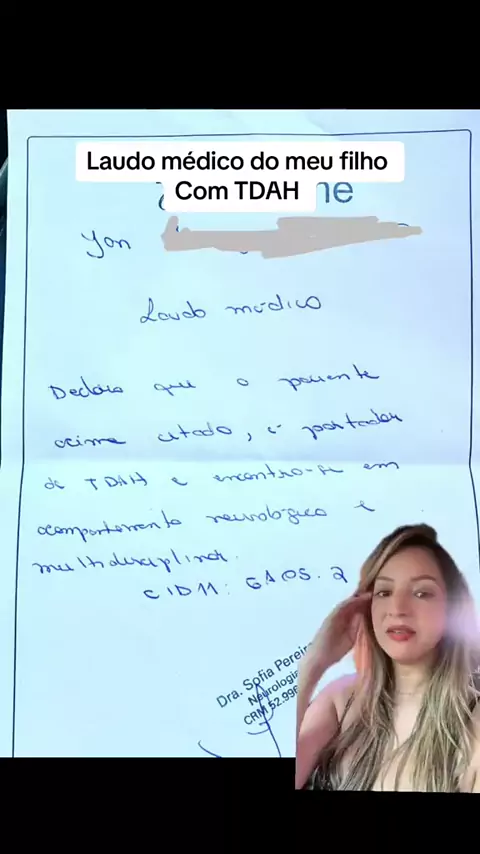 Laudo médico do meu filho
Com TDAH
ne
Yan
Laudo médico
Declaro que o paciente
acima citado, é portador
de TDAH e encontra-se em
acompanhamento neurológico e
multidisciplinar.
CID11: 6A05.2
Dra. Sofia Pereir
Neurologi
CRM 52.996